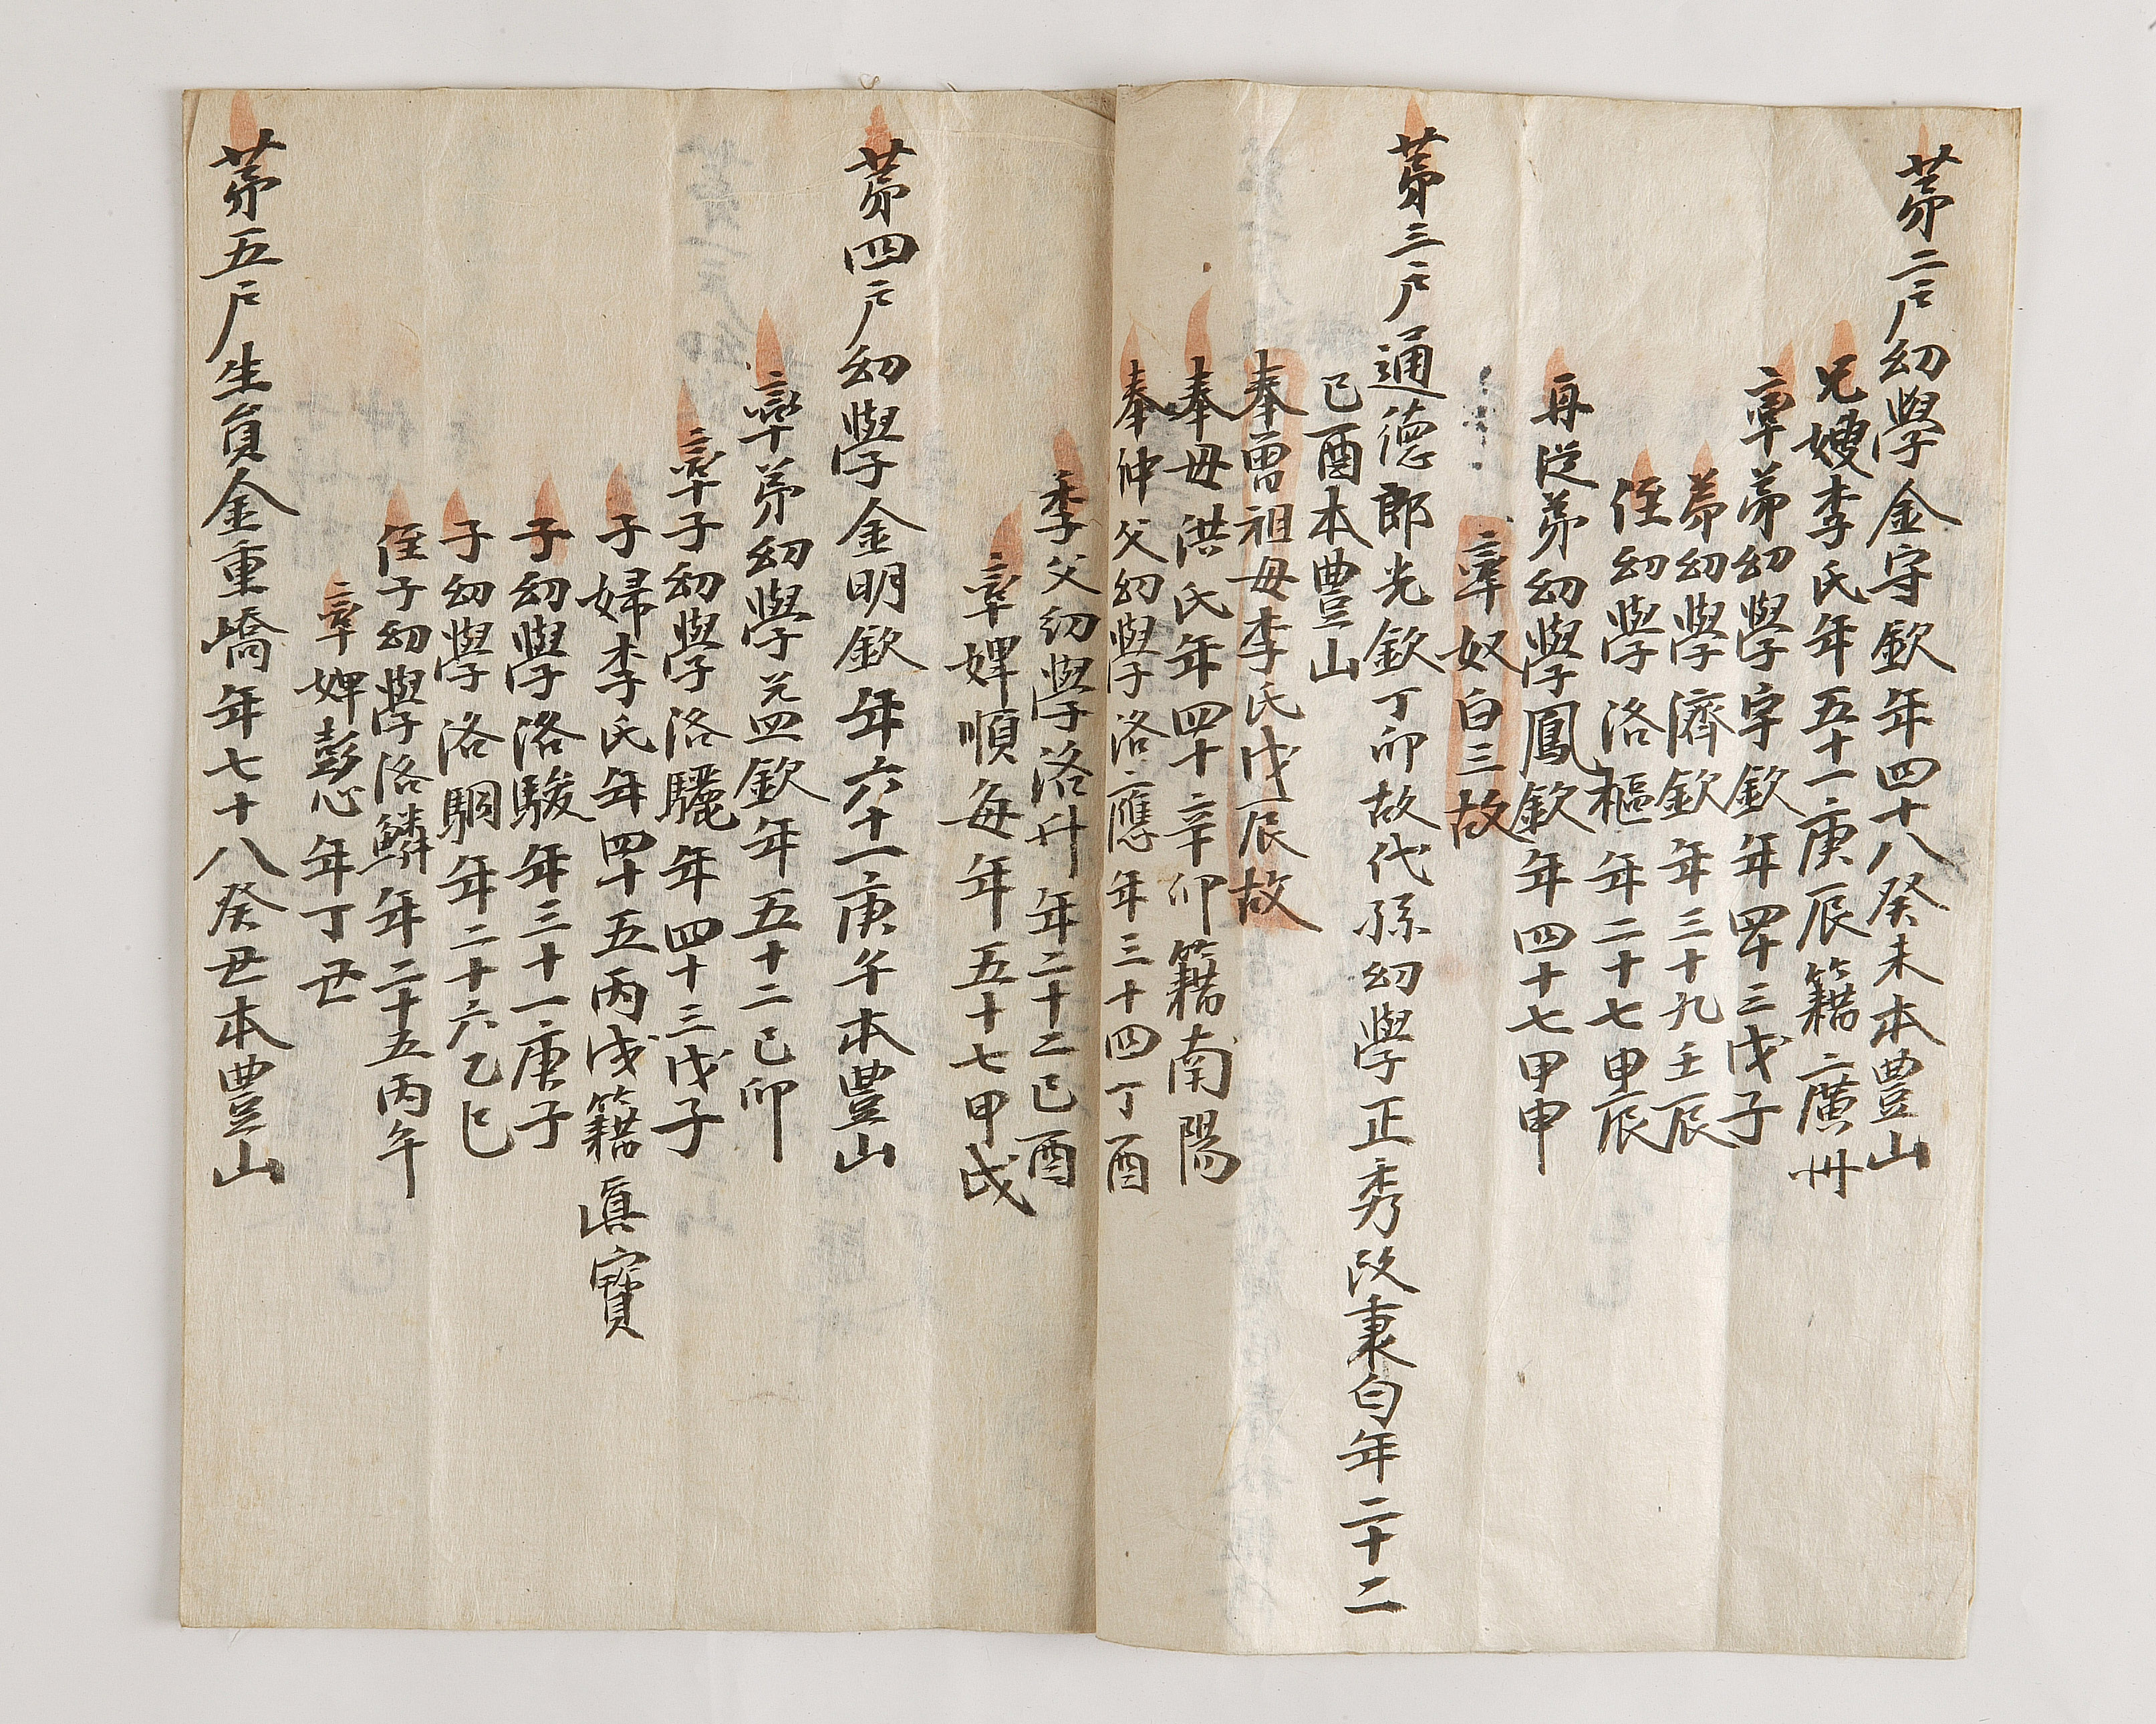 第二戶幼學金守欽年四十八癸未本豊山
兄嫂李氏年五十一庚辰籍廣州
率弟幼學宇欽年四十三戊子
弟幼學濟欽年三十九壬辰
侄幼學洛樞年二十七甲辰
再從弟幼學鳳欽年四十七甲申
率奴白三故
第三戶通德郎光欽丁卯故代孫幼學正秀改秉勻年二十二
己酉本豊山
奉曾祖母李氏戊辰故
奉母洪氏年四十辛卯籍南陽
奉仲父幼學洛應年三十四丁酉
季父幼學洛升年二十二己酉
率婢順每年五十七甲戌
第四戶幼學金明欽年六十一庚午本豊山
率弟幼學益欽年五十二己卯
率子幼學洛驪年四十三戊子
子婦李氏年四十五丙戌籍眞寶
子幼學洛駿年三十一庚子
子幼學洛駉年二十六乙巳
侄子幼學洛鱗年二十五丙午
率婢彭心年丁丑
第五戶生員金重嶠年七十八癸丑本豊山